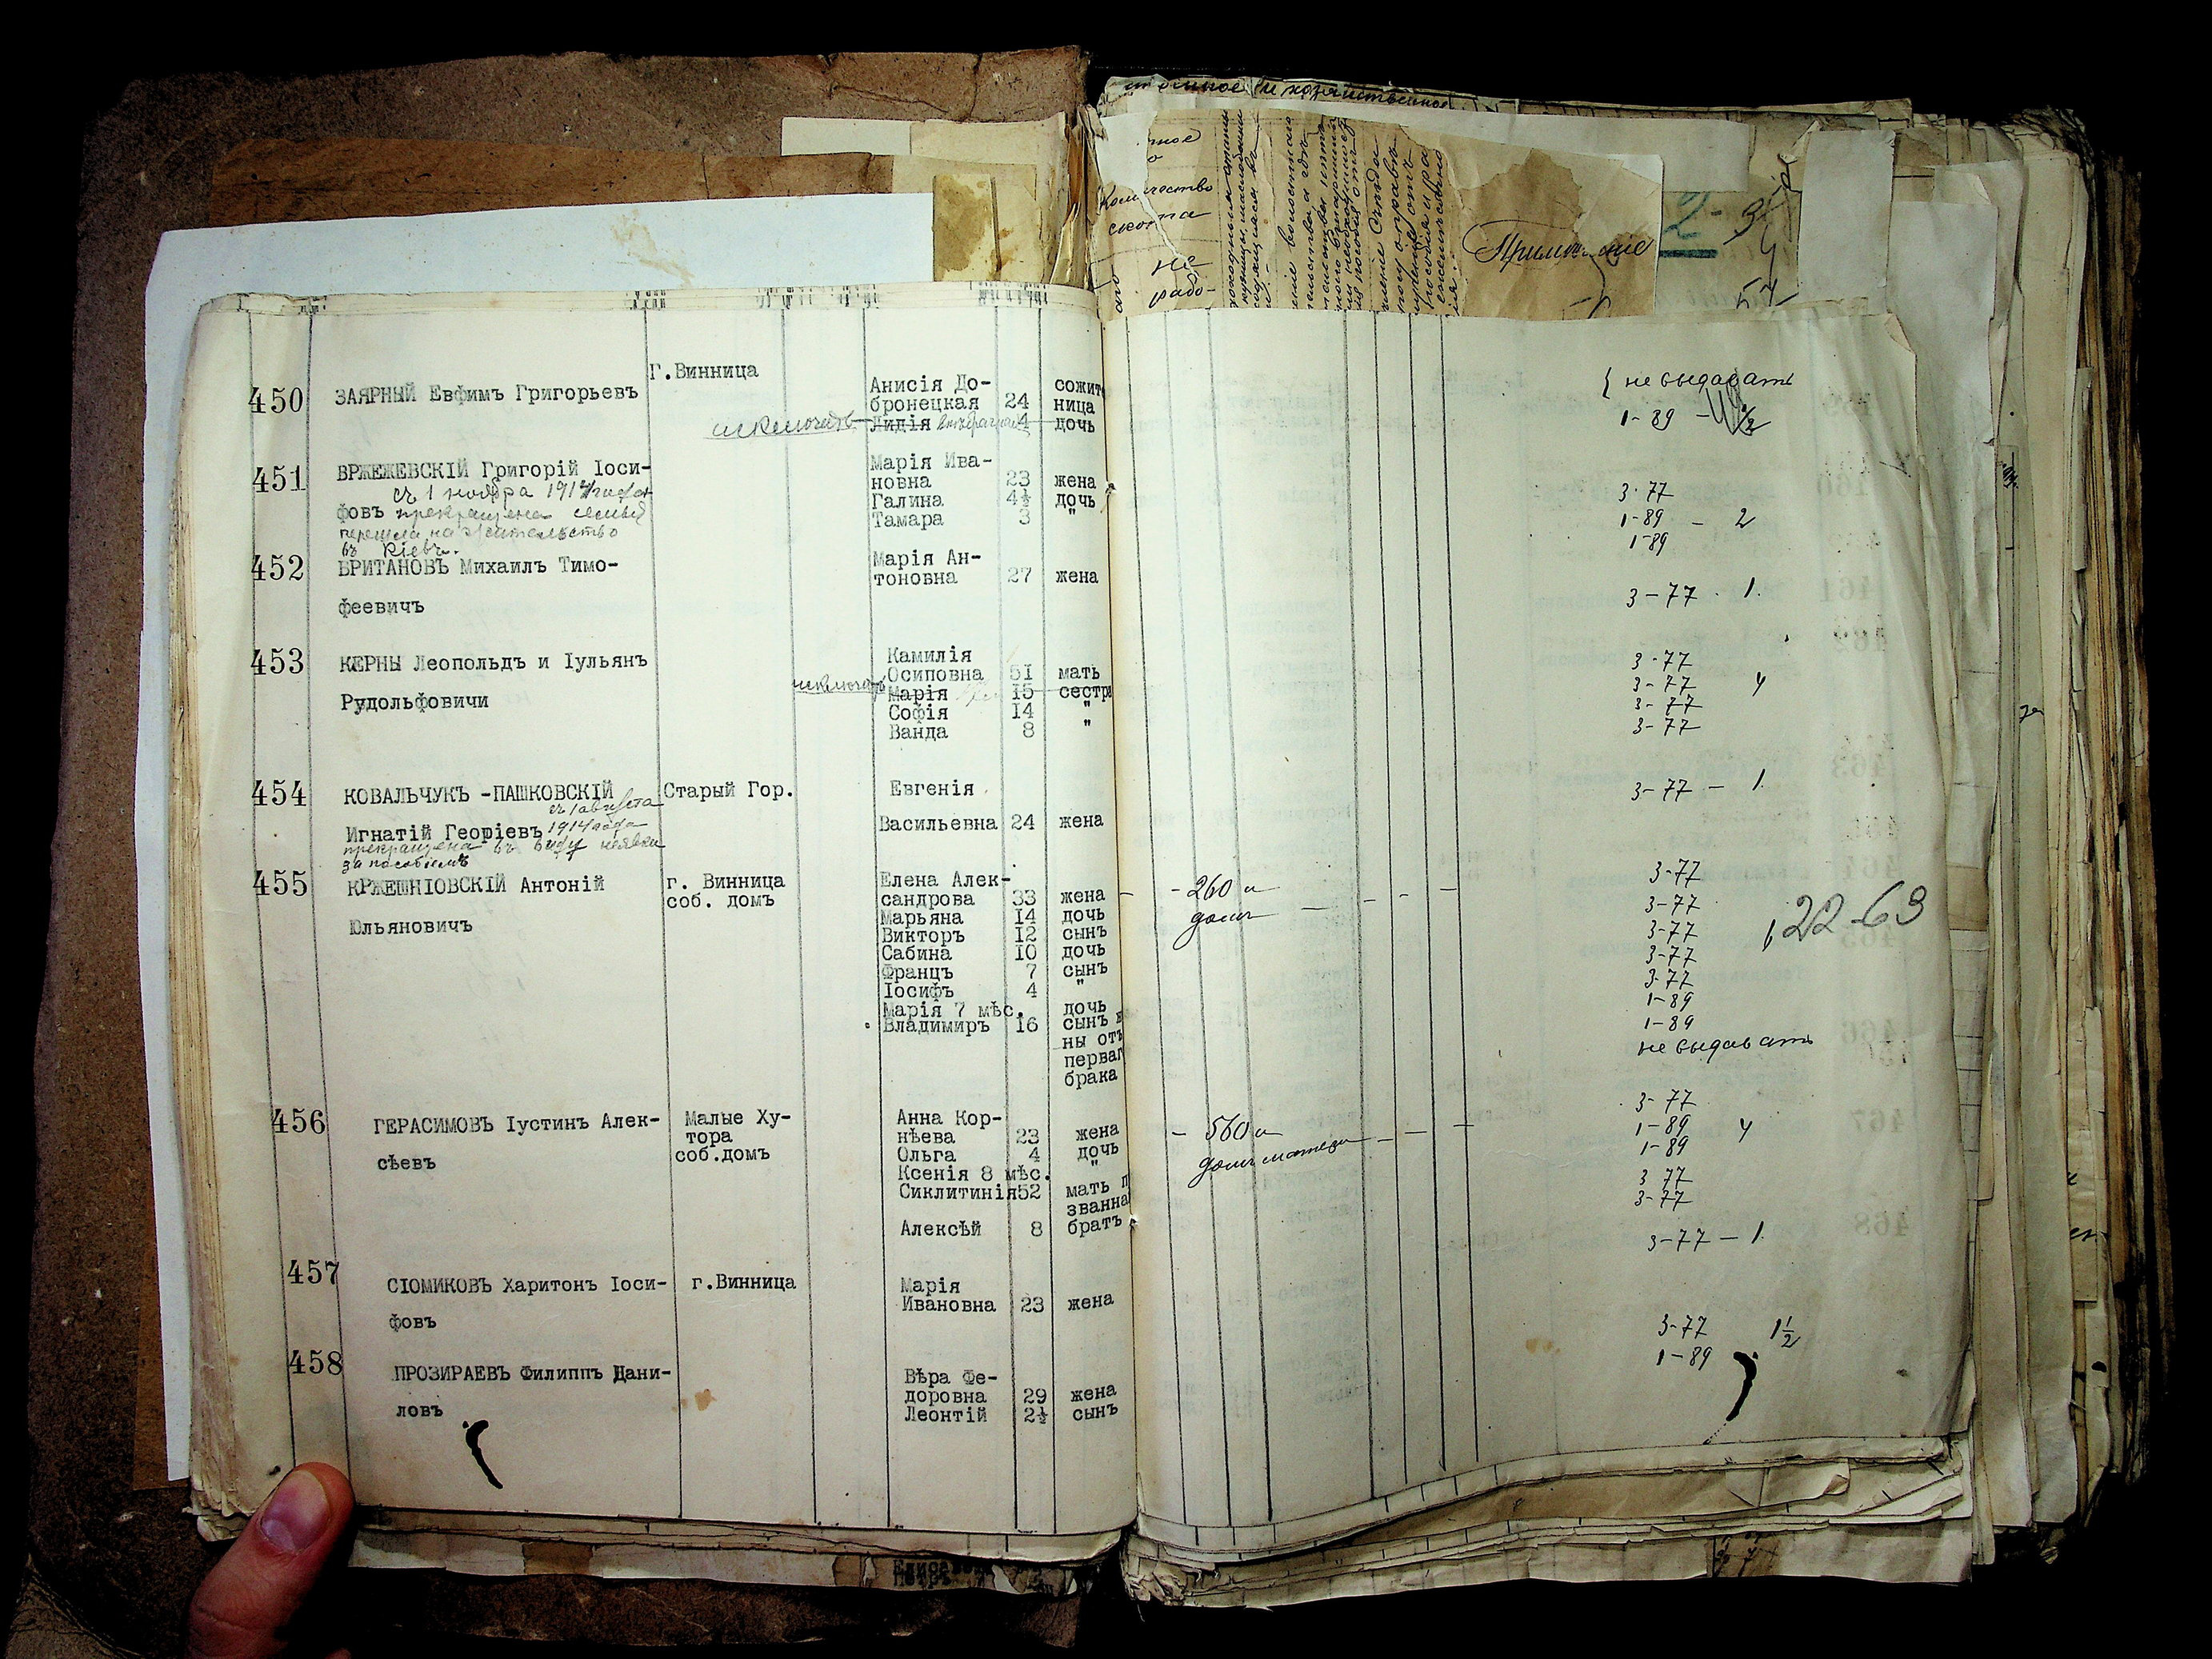 450 ЗАЯРНЫЙ Евфимъ Григорьевъ
Г.Винница
Анисія До-
бронецкая 24 сожит
ница
исключить Лидія 4 дочь
не выдавать
1-89 - 1/2
451 ВРЖЕЖЕВСКІЙ Григорій Іоси-
съ 1 ноября 1914 года
фовъ прекращена семья
перешла на жительство
въ Кіевъ.
Марія Ива-
новна 23 жена
Галина 4½ дочь
Тамара 3 "
3-77
1-89 - 2
1-89
452 БРИТАНОВЪ Михаилъ Тимо-
феевичъ
Марія Ан-
тоновна 27 жена
3-77 · 1.
453 КЕРНЫ Леопольдъ и Іульянъ
Рудольфовичи
Камилія
Осиповна 51 мать
исключить Марія 15 сестра
Софія 14 "
Ванда 8 "
3-77
3-77 4
3-77
3-77
454 КОВАЛЬЧУКЪ -ПАШКОВСКІЙ Старый Гор.
съ 1 августа
Игнатій Георіевъ 1914 года
прекращена въ виду неявки
за пособіемъ
Евгенія
Васильевна 24 жена
3-77 - 1.
455 КРЖЕШНІОВСКІЙ Антоній
Юльяновичъ
г. Винница
соб. домъ
Елена Алек-
сандрова 33 жена
Марьяна 14 дочь
Викторъ 12 сынъ
Сабина 10 дочь
Францъ 7 сынъ
Іосифъ 4 "
Марія 7 мѣс. дочь
Владимиръ 16 сынъ
ны отъ
перваг
брака
- 260
домъ
3-77
3-77
3-77
3-77
3-77
1-89
1-89
22-63
не выдавать
456 ГЕРАСИМОВЪ Іустинъ Алек-
сѣевъ
Малые Ху-
тора
соб.домъ
Анна Кор-
нѣева 23 жена
Ольга 4 дочь
Ксенія 8 мѣс. "
Сиклитинія 52 мать п
званна
Алексѣй 8 братъ
- 560
домъ матери
3-77
1-89 4
1-89
3 77
3-77
457 СІОМИКОВЪ Харитонъ Іоси-
фовъ
г.Винница
Марія
Ивановна 23 жена
3-77 - 1.
458 ПРОЗИРАЕВЪ Филиппъ Дани-
ловъ
Вѣра Фе-
доровна 29 жена
Леонтій 2½ сынъ
3-77 1½
1-89
и хозяйственное
скота
не
Примѣчаніе